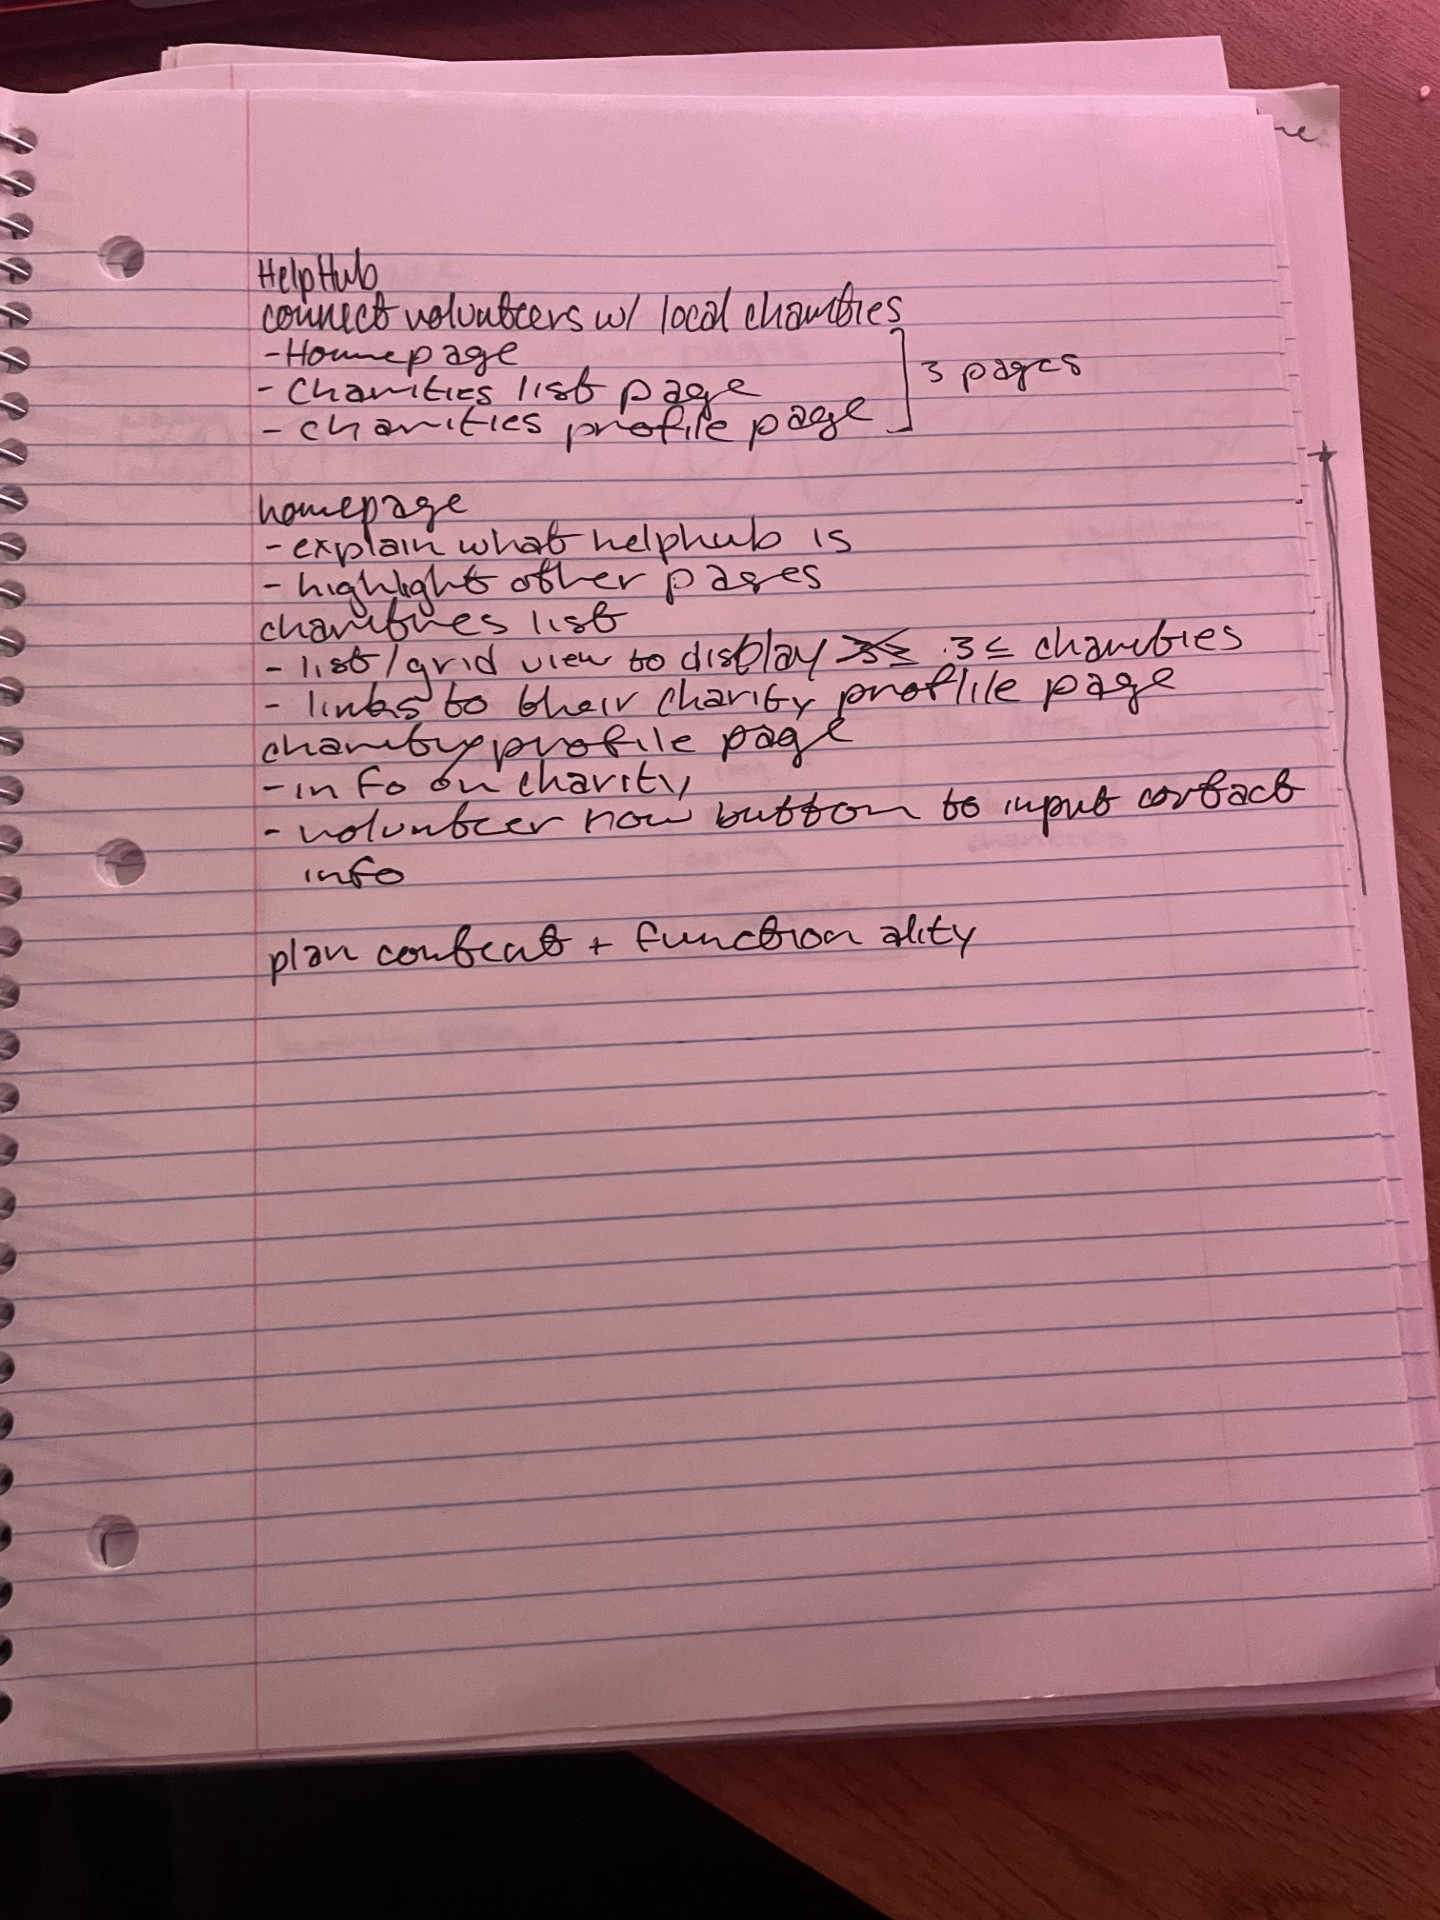 HelpHub
connect volunteers w/ local charities
- Homepage
- Charities list page
- charities profile page
3 pages
homepage
- explain what helphub is
- highlight other pages
charities list
- list/grid view to display 3≤ charities
- links to their charity proflile page
charity profile page
- info on charity
- volunteer now button to input contact
info
plan content + functionality